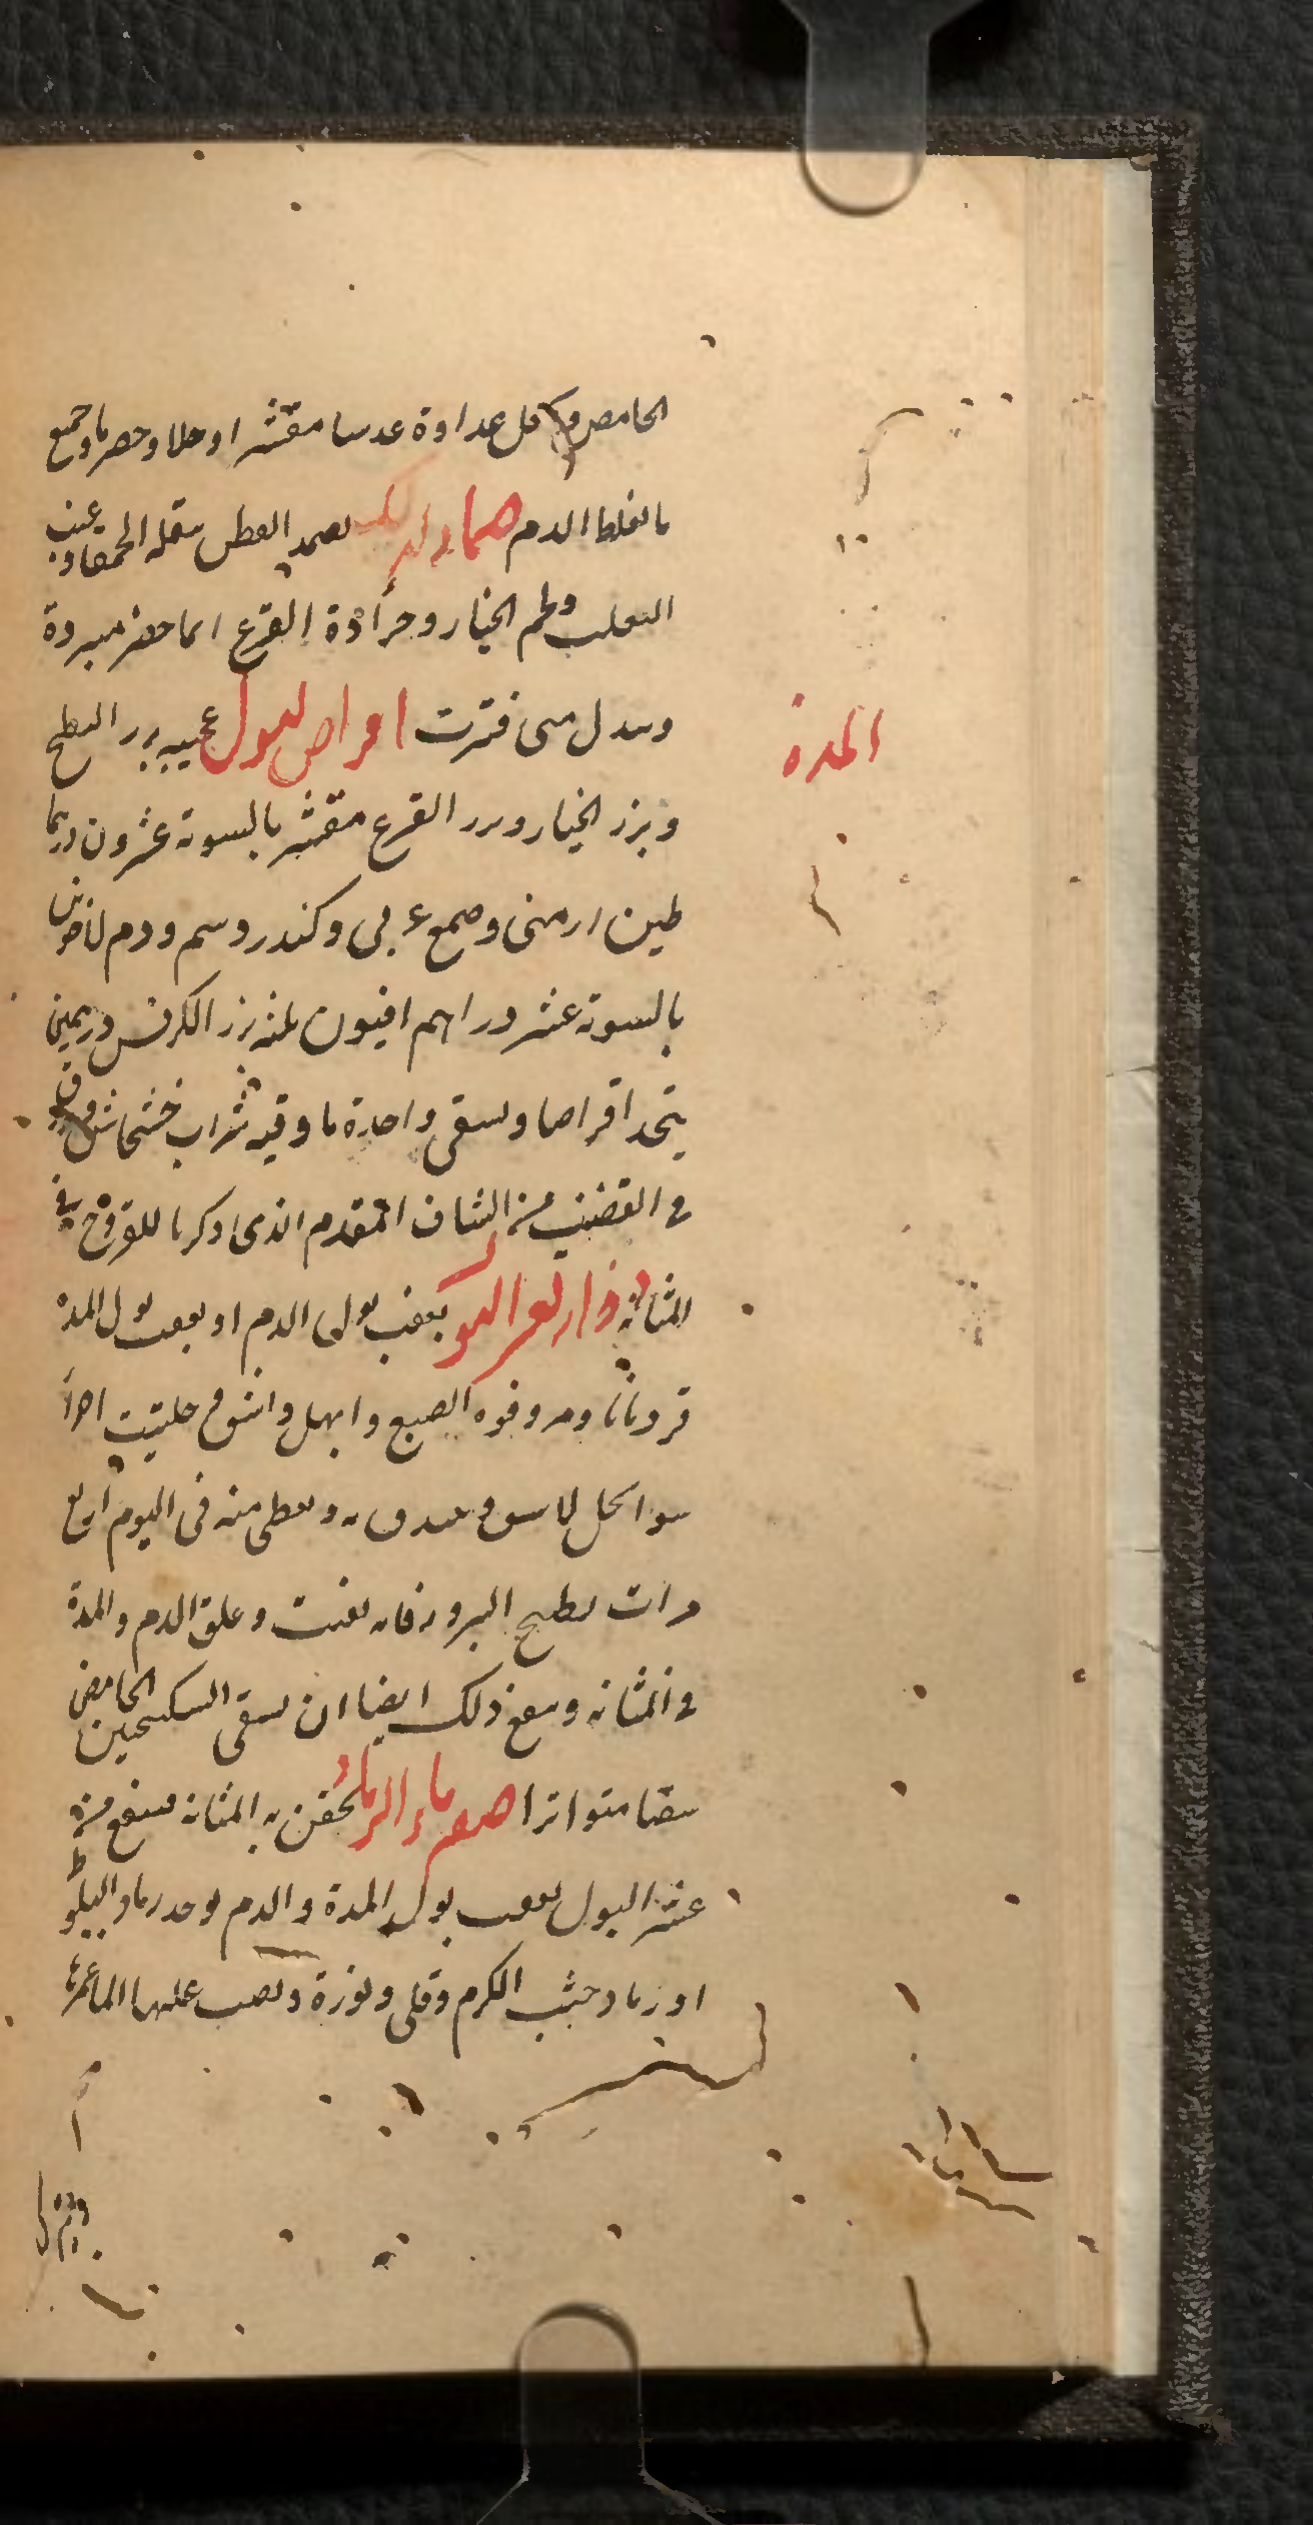 الحامض وياكل عداوة عدسا مقشرا وخلا وحصرما وجميع
ما يغلظ الدم ضماد لذلك يضمد القطن ببقلة الحمقا وعنب
الثعلب ولحم الخيار وجرادة القرع ايما حضر مبردة
ويبدل متى فترت اقراص لبول
المدة
عجيبه بزر البطيخ
وبزر الخيار وبزر القرع مقشر بالسوية عشرون درهما
طين ارمني وصمع عربي وكندر وسم ودم لاخوين
بالسوية عشر دراهم افيون ثلثه بزر الكرفس درهمين
يتخذ اقراصا ويسقى واحدة باوقيه شراب خشخاش
في القضيب من الشياف المتقدم الذي ذكرنا للقروح في
المثانة بعقب بول الدم او بعقب بول المدة
قردمانا ومر وفوه الصبغ وابهل واشق وحلتيت اجزا
سوا يحل الاشق ويبندق به ويعطى منه في اليوم اربع
مرات بطبيخ البزور فانه يفتت وعلق الدم والمدة
في المثانه وينفع ذلك ايضا ان يسقى السكنجبين الحامض
سقيا متواترا صفة ماء الرماد يحقن به المثانه ينفع من
عسر البول بعقب بول المدة والدم يوخذ رماد البلوط
او رماد خشب الكرم وقلى ونورة ويصب عليها الما غمرها